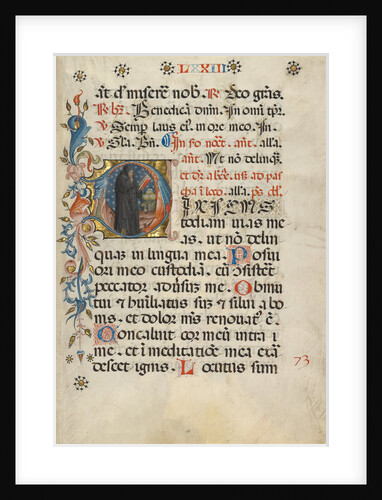 LXXIII
añt d̃ miserẽ nob̃. R̃ Deo grãs.
R̃bꝛ. Benedicã dñm. In omi tp̃r.
℣ Semꝑ laus eĩ. in ore meo. In.
℣ Glã. Bñ. In no noct̃. añt. alla.
añt. Ut nõ delinq̃.
alla. ps
DIXI CUS
todiam uias me
as. ut nõ delin
quaz in lingua mea. Posui
ori meo custodiã. cũ ꝯsisteret
peccator aduersũz me. Obmu
tui ⁊ humiliatus suz ⁊ silui a bo
nis. et dolor me᷒ renouat᷒ ẽ.
Concaluit cor meũ intra i
me. et ĩ meditatiõe mea exar
descet ignis. Locutus sum
73